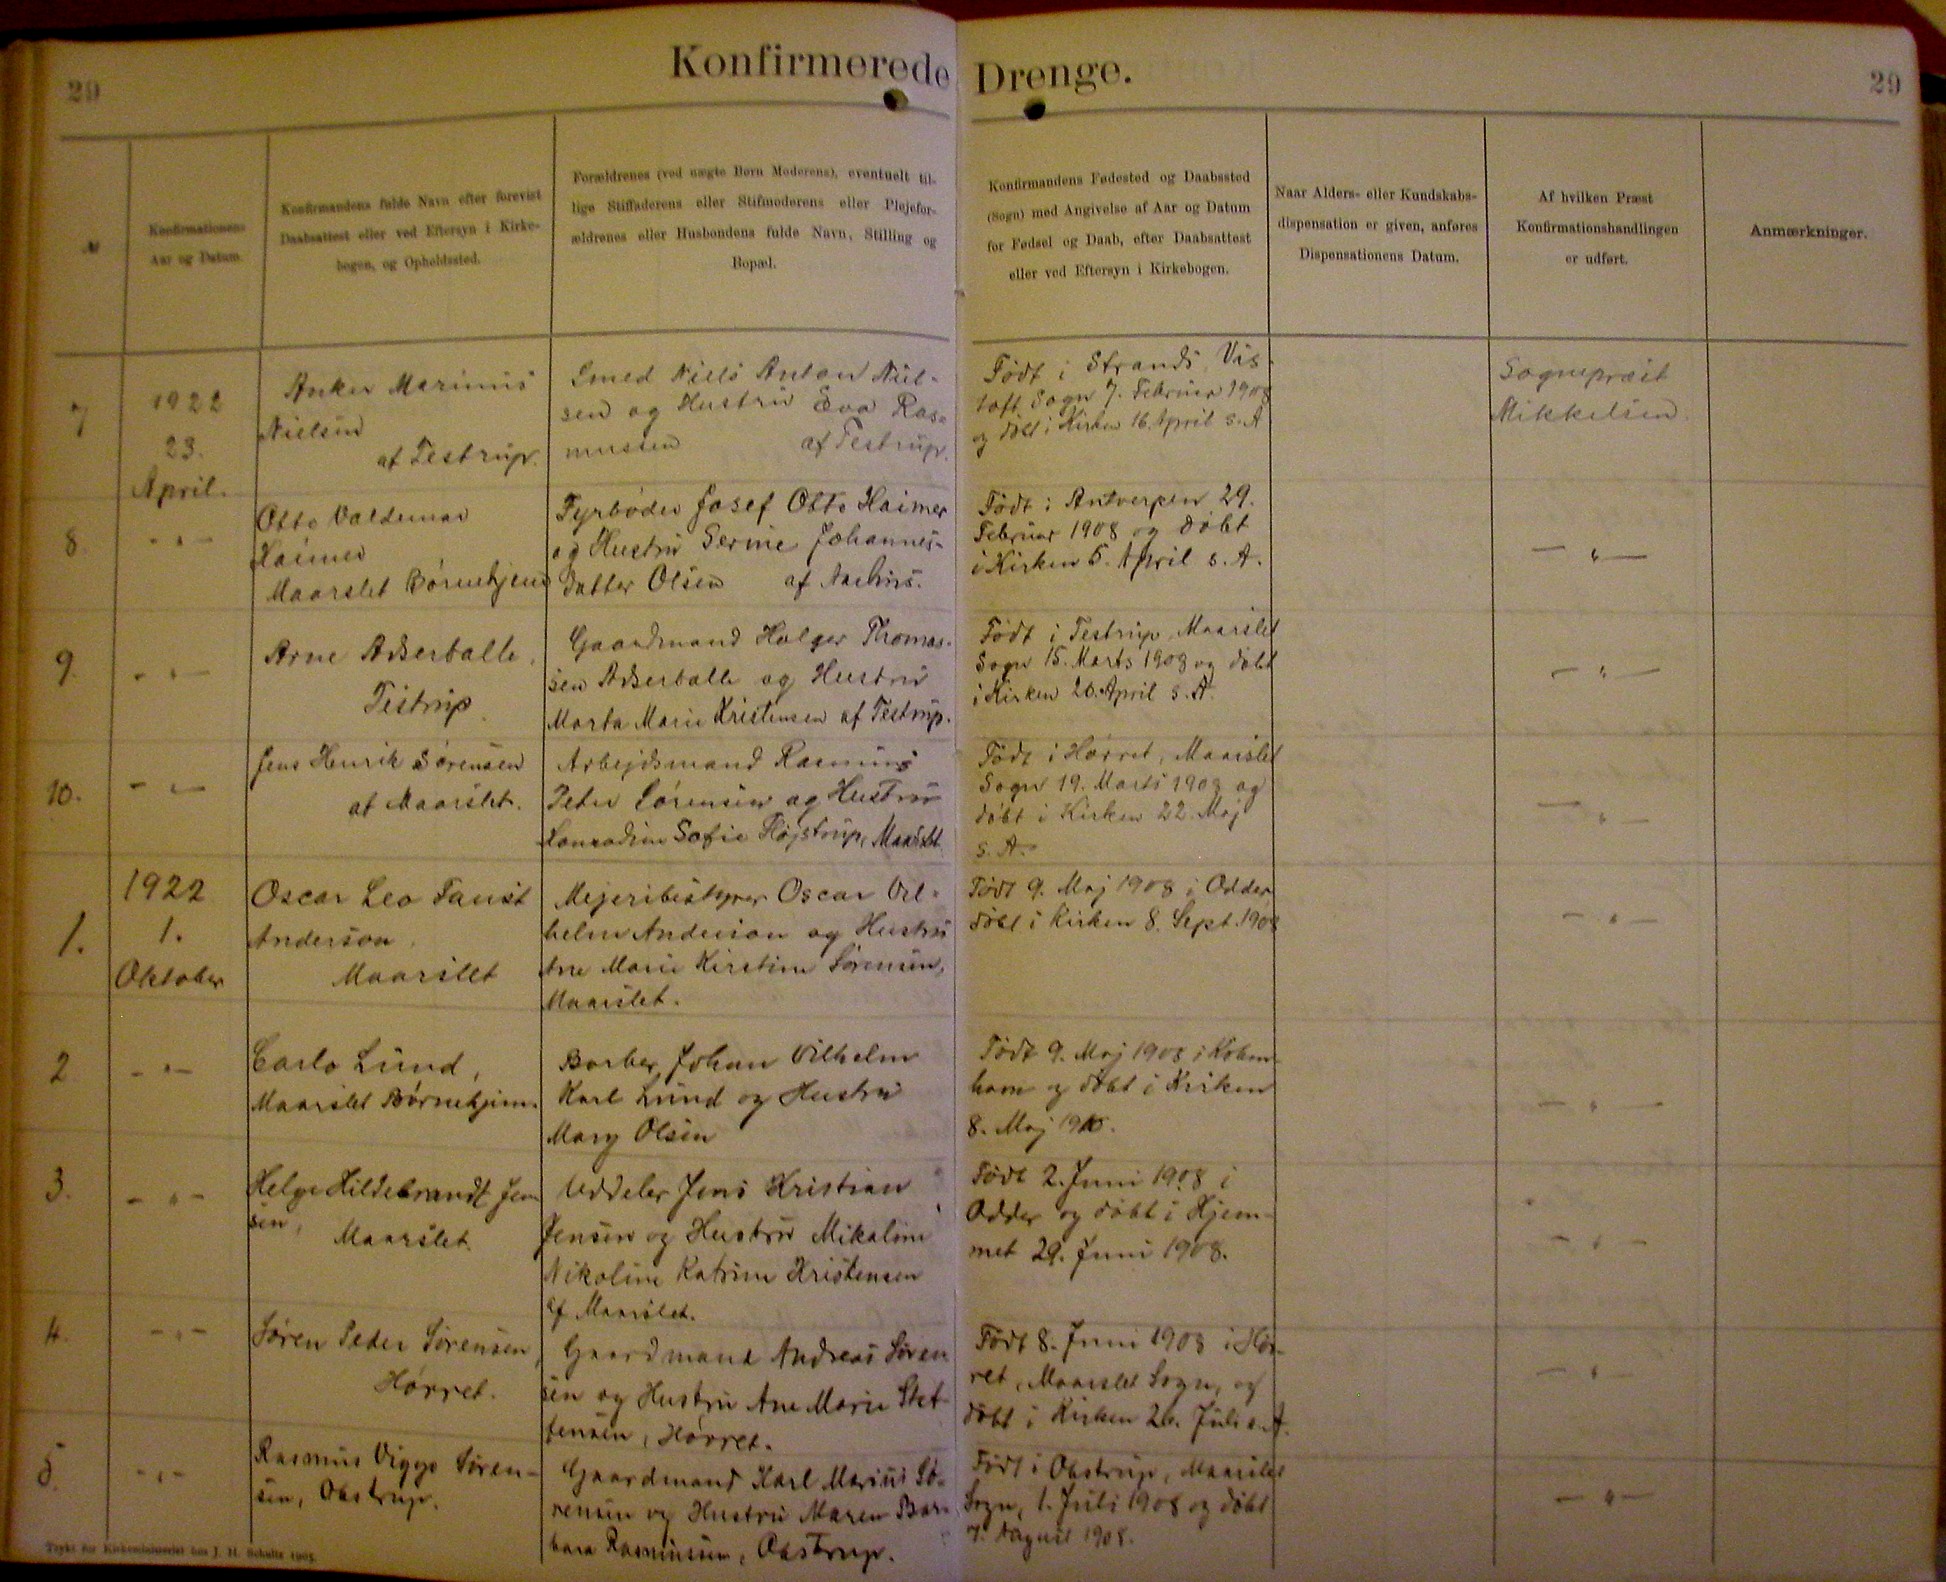 Konfirmerede Drenge.
29
29
№
Konfirmationens
Aar og Datum.
Konfirmandens fulde Navn efter forevist
Daabsattest eller ved Eftersyn i Kirke-
bogen, og Opholdssted.
Forældrenes (ved uægte Børn Moderens), eventuelt til-
lige Stiffaderens eller Stifmoderens eller Plejefor-
ældrenes eller Husbondens fulde Navn, Stilling og
Bopæl.
Konfirmandens Fødested og Daabssted
(Sogn) med Angivelse af Aar og Datum
for Fødsel og Daab, efter Daabsattest
eller ved Eftersyn i Kirkebogen.
Naar Alders- eller Kundskabs-
dispensation er given, anføres
Dispensationens Datum.
Af hvilken Præst
Konfirmationshandlingen
er udført.
Anmærkninger.
7
1922
23.
April.
Anker Marinus
Nielsen
af Testrup.
Smed Niels Anton Niel-
sen og Hustru Eva Ras-
mussen af Testrup.
Født i Strands, Vis-
toft Sogn 7. Februar 1908
og døbt i Kirken 16. April s. A
Sognepræst
Mikkelsen
8.
- " -
Otto Valdemar
Haimer
Maarslet Børnehjem
Fyrbøder Josef Otto Haimer
og Hustru Serine Johannes-
datter Olsen af Aarhus.
Født i Antverpen 29.
Februar 1908 og døbt
i Kirken 5. April s. A.
- " -
9.
- " -
Arne Adserballe,
Testrup
Gaardmand Holger Thomas-
sen Adserballe og Hustru
Marta Marie Kristensen af Testrup.
Født i Testrup, Maarslet
Sogn 15. Marts 1908 og døbt
i Kirken 20. April s. A.
- " -
10.
- " -
Jens Henrik Sørensen
af Maarslet.
Arbejdsmand Rasmus
Peder Sørensen og Hustru
Konradine Sofie Højstrup, Maarslet
Født i Hørret, Maarslet
Sogn 19. Marts 1908 og
døbt i Kirken 22. Maj
s. A.
- " -
1.
1922
1.
Oktober
Oscar Leo Faust
Anderson,
Maarslet
Mejeribestyrer Oscar Vil-
helm Anderson og Hustru
Ane Marie Kirstine Sørensen,
Maarslet.
Født 9. Maj 1908 i Odder
døbt i Kirken 8. Sept. 1908
- " -
2
- " -
Carlo Lund,
Maarslet Børnehjem.
Barber Johan Vilhelm
Karl Lund og Hustru
Mary Olsen
Født 9. Maj 1908 i Køben-
havn og døbt i Kirken
8. Maj 1910.
- " -
3.
- " -
Helge Hildebrandt Jen-
sen,
Maarslet.
Uddeler Jens Kristian
Jensen og Hustru Mikaline
Nikoline Katrine Kristensen
af Maarslet.
Født 2. Juni 1908 i
Odder og døbt i Hjem-
met 29. Juni 1908.
- " -
4.
- " -
Søren Peder Sørensen,
Hørret.
Gaardmand Andreas Søren
sen og Hustru Ane Marie Stef-
fensen, Hørret.
Født 8. Juni 1908 i Hør-
ret, Maarslet Sogn, og
døbt i Kirken 26. Juli s. A.
- " -
5.
- " -
Rasmus Viggo Søren-
sen, Obstrup.
Gaardmand Karl Marius Sø-
rensen og Hustru Maren Bar-
bara Rasmussen, Obstrup.
Født i Obstrup, Maarslet
Sogn, 1. Juli 1908 og døbt
7. August 1908.
- " -
Trykt for Kirkeministeriet hos J. H. Schultz 1905.